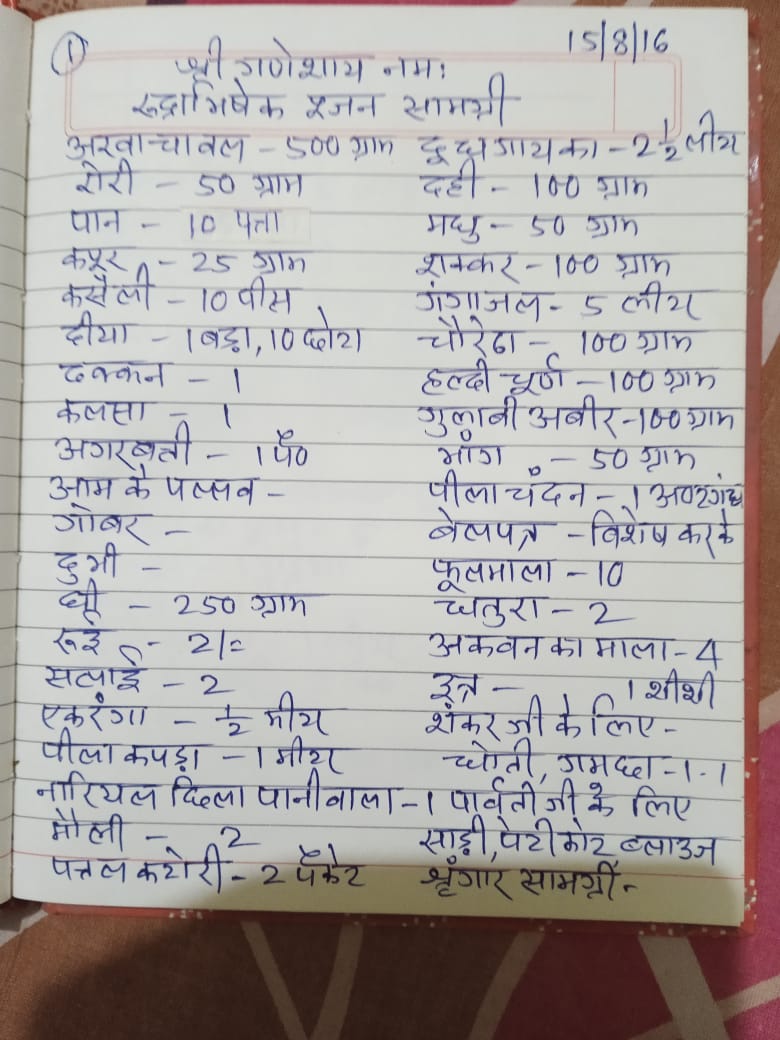 ①
15/8/16
श्री गणेशाय नमः
रूद्राभिषेक पूजन सामग्री
अरवा चावल - 500 ग्राम
रोरी - 50 ग्राम
पान - 10 पत्ता
कपूर - 25 ग्राम
कसैली - 10 पीस
दीया - 1 बड़ा, 10 छोटा
ढक्कन - 1
कलसा - 1
अगरबत्ती - 1 पै०
आम के पल्लव -
गोबर -
दुभी -
घी - 250 ग्राम
रूई - 2/=
सलाई - 2
एकरंगा - ½ मीटर
पीला कपड़ा - 1 मीटर
नारियल छिला पानीवाला - 1
मौली - 2
पत्तल कटोरी - 2 पैकेट
दूध गाय का - 2 ½ लीटर
दही - 100 ग्राम
मधु - 50 ग्राम
शक्कर - 100 ग्राम
गंगाजल - 5 लीटर
चौरेठा - 100 ग्राम
हल्दी चूर्ण - 100 ग्राम
गुलाबी अबीर - 100 ग्राम
भांग - 50 ग्राम
पीला चंदन - 1 अष्टगंध
बेलपत्र - विशेष करके
फूलमाला - 10
धतुरा - 2
अकवन का माला - 4
इत्र - 1 शीशी
शंकर जी के लिए -
धोती, गमछा - 1-1
पार्वती जी के लिए
साड़ी, पेटीकोट, ब्लाउज
श्रृंगार सामग्री -